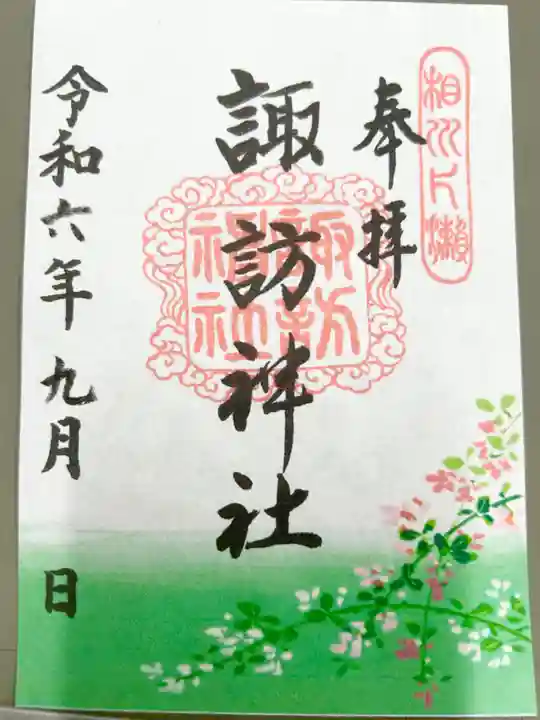 相州片瀬
奉拝
諏訪神社
諏訪神社
令和六年九月 日